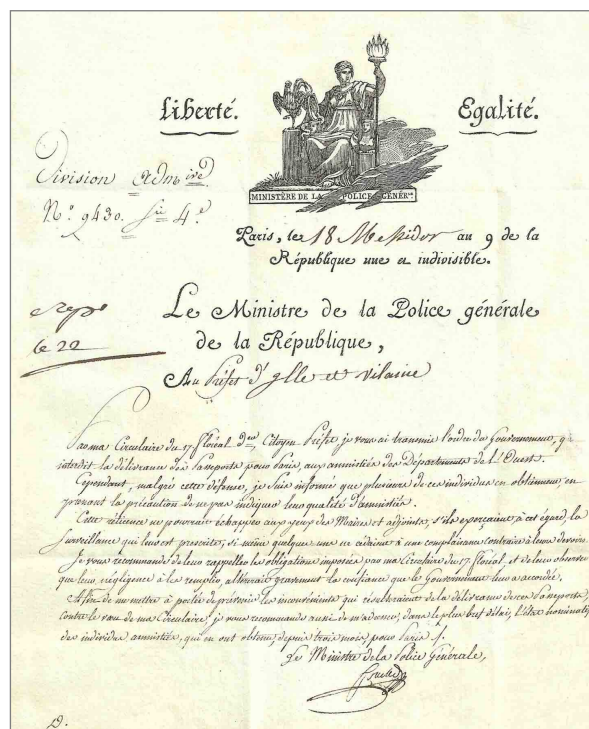 Liberté. Egalité.
MINISTÈRE DE LA POLICE GÉNÉR.le
Division Adm.ive
N.° 9430. 4.e
Paris, le 18 Messidor an 9 de la
République une et indivisible.
Le Ministre de la Police générale
de la République,
le 22
Au Préfet d'Ille et Vilaine
Par ma Circulaire du 17 floréal d.er, Citoyen Préfet, je vous ai transmis l'ordre du Gouvernement, qui
interdit la délivrance des Passeports pour Paris, aux amnistiés des Départements de l'Ouest.
Cependant, malgré cette défense, je suis informé que plusieurs de ces individus en obtiennent en
prenant la précaution de ne pas indiquer leur qualité d'amnistiés.
Cette réticence ne pourrait échapper aux yeux des Maires et adjoints, s'ils exerçaient à cet égard, la
surveillance qui leur est prescrite, si même quelques uns ne cédaient à une complaisance contraire à leurs devoirs.
Je vous recommande de leur rappeller les obligations imposées par ma Circulaire du 17 floréal et de leur observer
que leur négligence à les remplir, altérerait gravement la confiance que le Gouvernement leur a accordée.
Afin de me mettre à portée de prévenir les inconvénients qui résulteraient de la délivrance de ces Passeports,
contre le vœu de ma Circulaire, je vous recommande aussi de m'adresser, dans le plus bref délai, l'état nominatif
des individus amnistiés, qui en ont obtenu, depuis trois mois, pour Paris.
Le Ministre de la Police Générale,
Fouché
D.